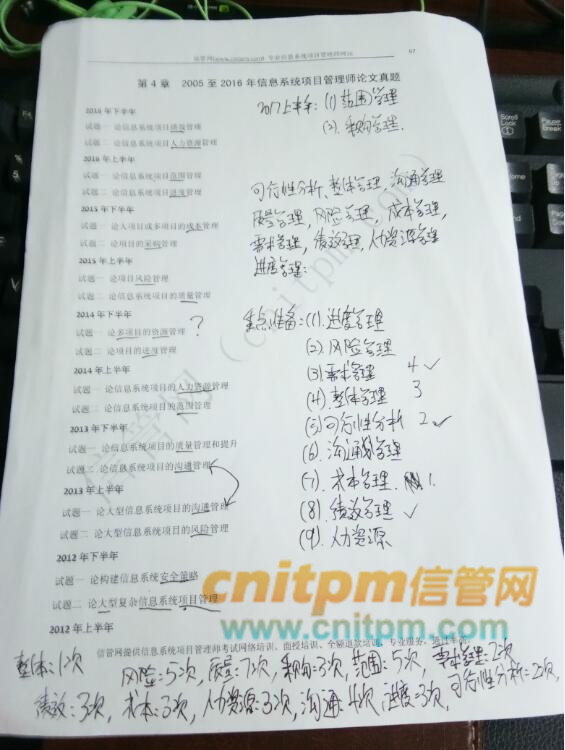 信管网(www.cnitpm.com) 专业信息系统项目管理师网站
67
第 4 章 2005 至 2016 年信息系统项目管理师论文真题
2016 年下半年
试题一 论信息系统项目绩效管理
试题二 论信息系统项目人力资源管理
2016 年上半年
试题一 论信息系统项目范围管理
试题二 论信息系统项目进度管理
2015 年下半年
试题一 论大项目或多项目的成本管理
试题二 论项目的采购管理
2015 年上半年
试题一 论项目风险管理
试题二 论信息系统项目的质量管理
2014 年下半年
试题一 论多项目的资源管理
?
试题二 论项目的进度管理
2014 年上半年
试题一 论信息系统项目的人力资源管理
试题二 论信息系统项目的范围管理
2013 年下半年
试题一 论信息系统项目的质量管理和提升
试题二 论信息系统项目的沟通管理
2013 年上半年
试题一 论大型信息系统项目的沟通管理
试题二 论大型信息系统项目的风险管理
2012 年下半年
试题一 论构建信息系统安全策略
试题二 论大型复杂信息系统项目管理
2012 年上半年
信管网提供信息系统项目管理师考试网络培训、面授培训、全额退款培训,专业服务
2017上半年:(1) 范围管理
(2). 采购管理.
可行性分析、整体管理,沟通管理
质量管理,风险管理,成本管理,
需求管理,绩效管理,人力资源管理
进度管理:
重点准备:(1).进度管理
(2).风险管理
(3).需求管理 4✓
(4).整体管理 3
(5).可行性分析 2✓
(6).沟通管理
(7).成本管理. 1.
(8).绩效管理 ✓
(9).人力资源
整体:1次 风险:5次,质量:7次,采购:3次,范围:5次,需求管理:2次
绩效:3次,成本:3次,人力资源:3次,沟通:4次,进度:3次,可行性分析=2次,
信管网(cnitpm.com)
cnitpm信管网
www.cnitpm.com
Scroll Lock
Pause Break